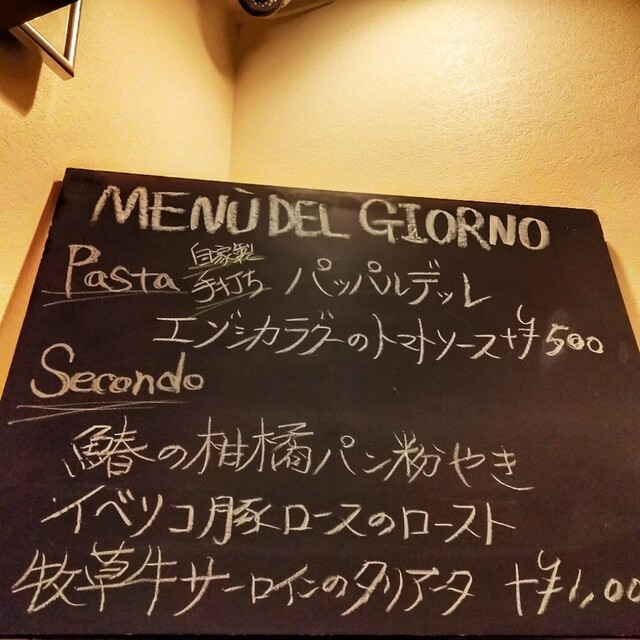 MENÙ DEL GIORNO
Pasta 自家製 手打ち パッパルデッレ
エゾシカラグーのトマトソース +¥500
Secondo
鰆の柑橘パン粉やき
イベリコ豚ロースのロースト
牧草牛サーロインのタリアータ +¥1,00